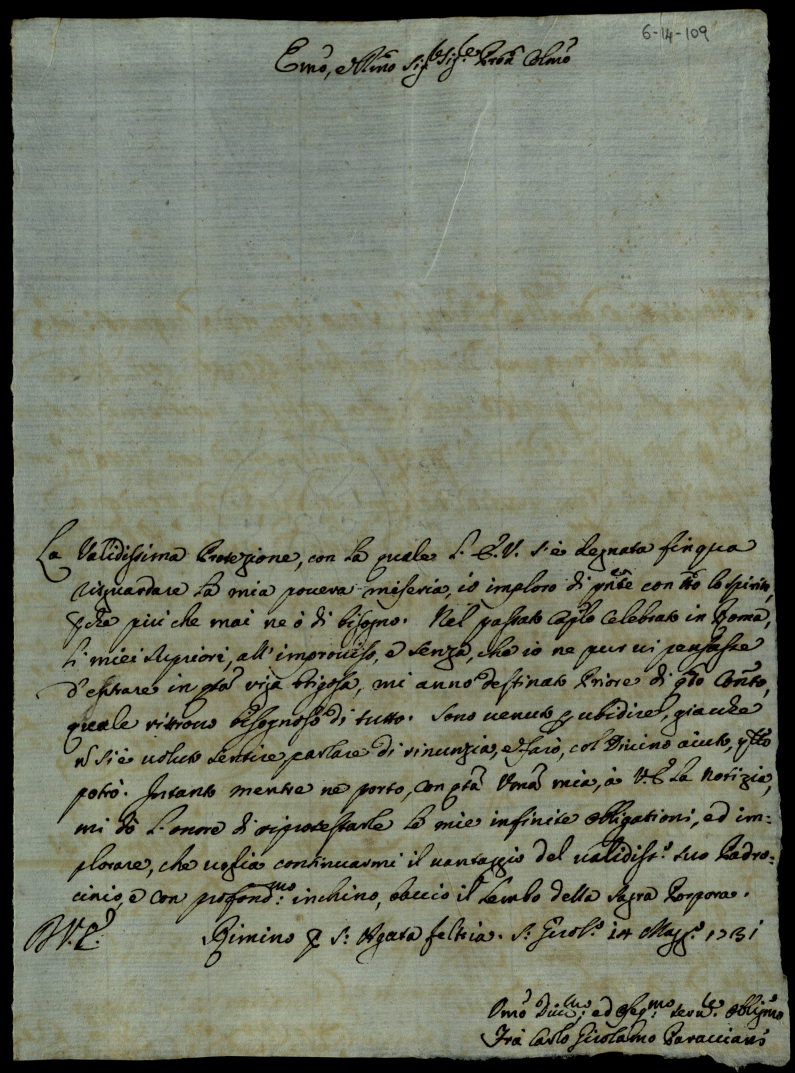 6-14-109
Emo, e Rmo Sig.r Sig.re Prõn Colmo
La Validissima Protezione, con la quale L'E.V. s'è degnata finqua
risguardare la mia povera miseria, io imploro di pnte con tto lo spirito,
perche più che mai ne ò di bisogno. Nel passato Caplo celebrato in Roma,
li miei Supriori, all'improviso, e senza, che io ne pur vi pensasse
d'entrare in pta briga, mi anno destinato Priore di qto Convto,
quale ritrovo bisognoso di tutto. Sono venuto p ubidire, giache
n si è voluto sentire parlare di rinunzia, e farò, col Divino aiuto, qto
potrò. Intanto mentre ne porto, con pta mia, à V.E. la notizia,
mi dò l'onore di riprotestarle le mie infinite obligationi, ed im=
plorare, che voglia continuarmi il vantaggio del validiss.o suo Padro=
cinio, e con profond.mo inchino, baccio il Lembo della Sagra Porpora.
D V.E. Rimino p S. Agata feltria. S. Girol.o 14 Magg.o 1731
Umo Div.mo ed Oseq.mo serv.e Obligmo
Frà Carlo Girolamo Paracciani